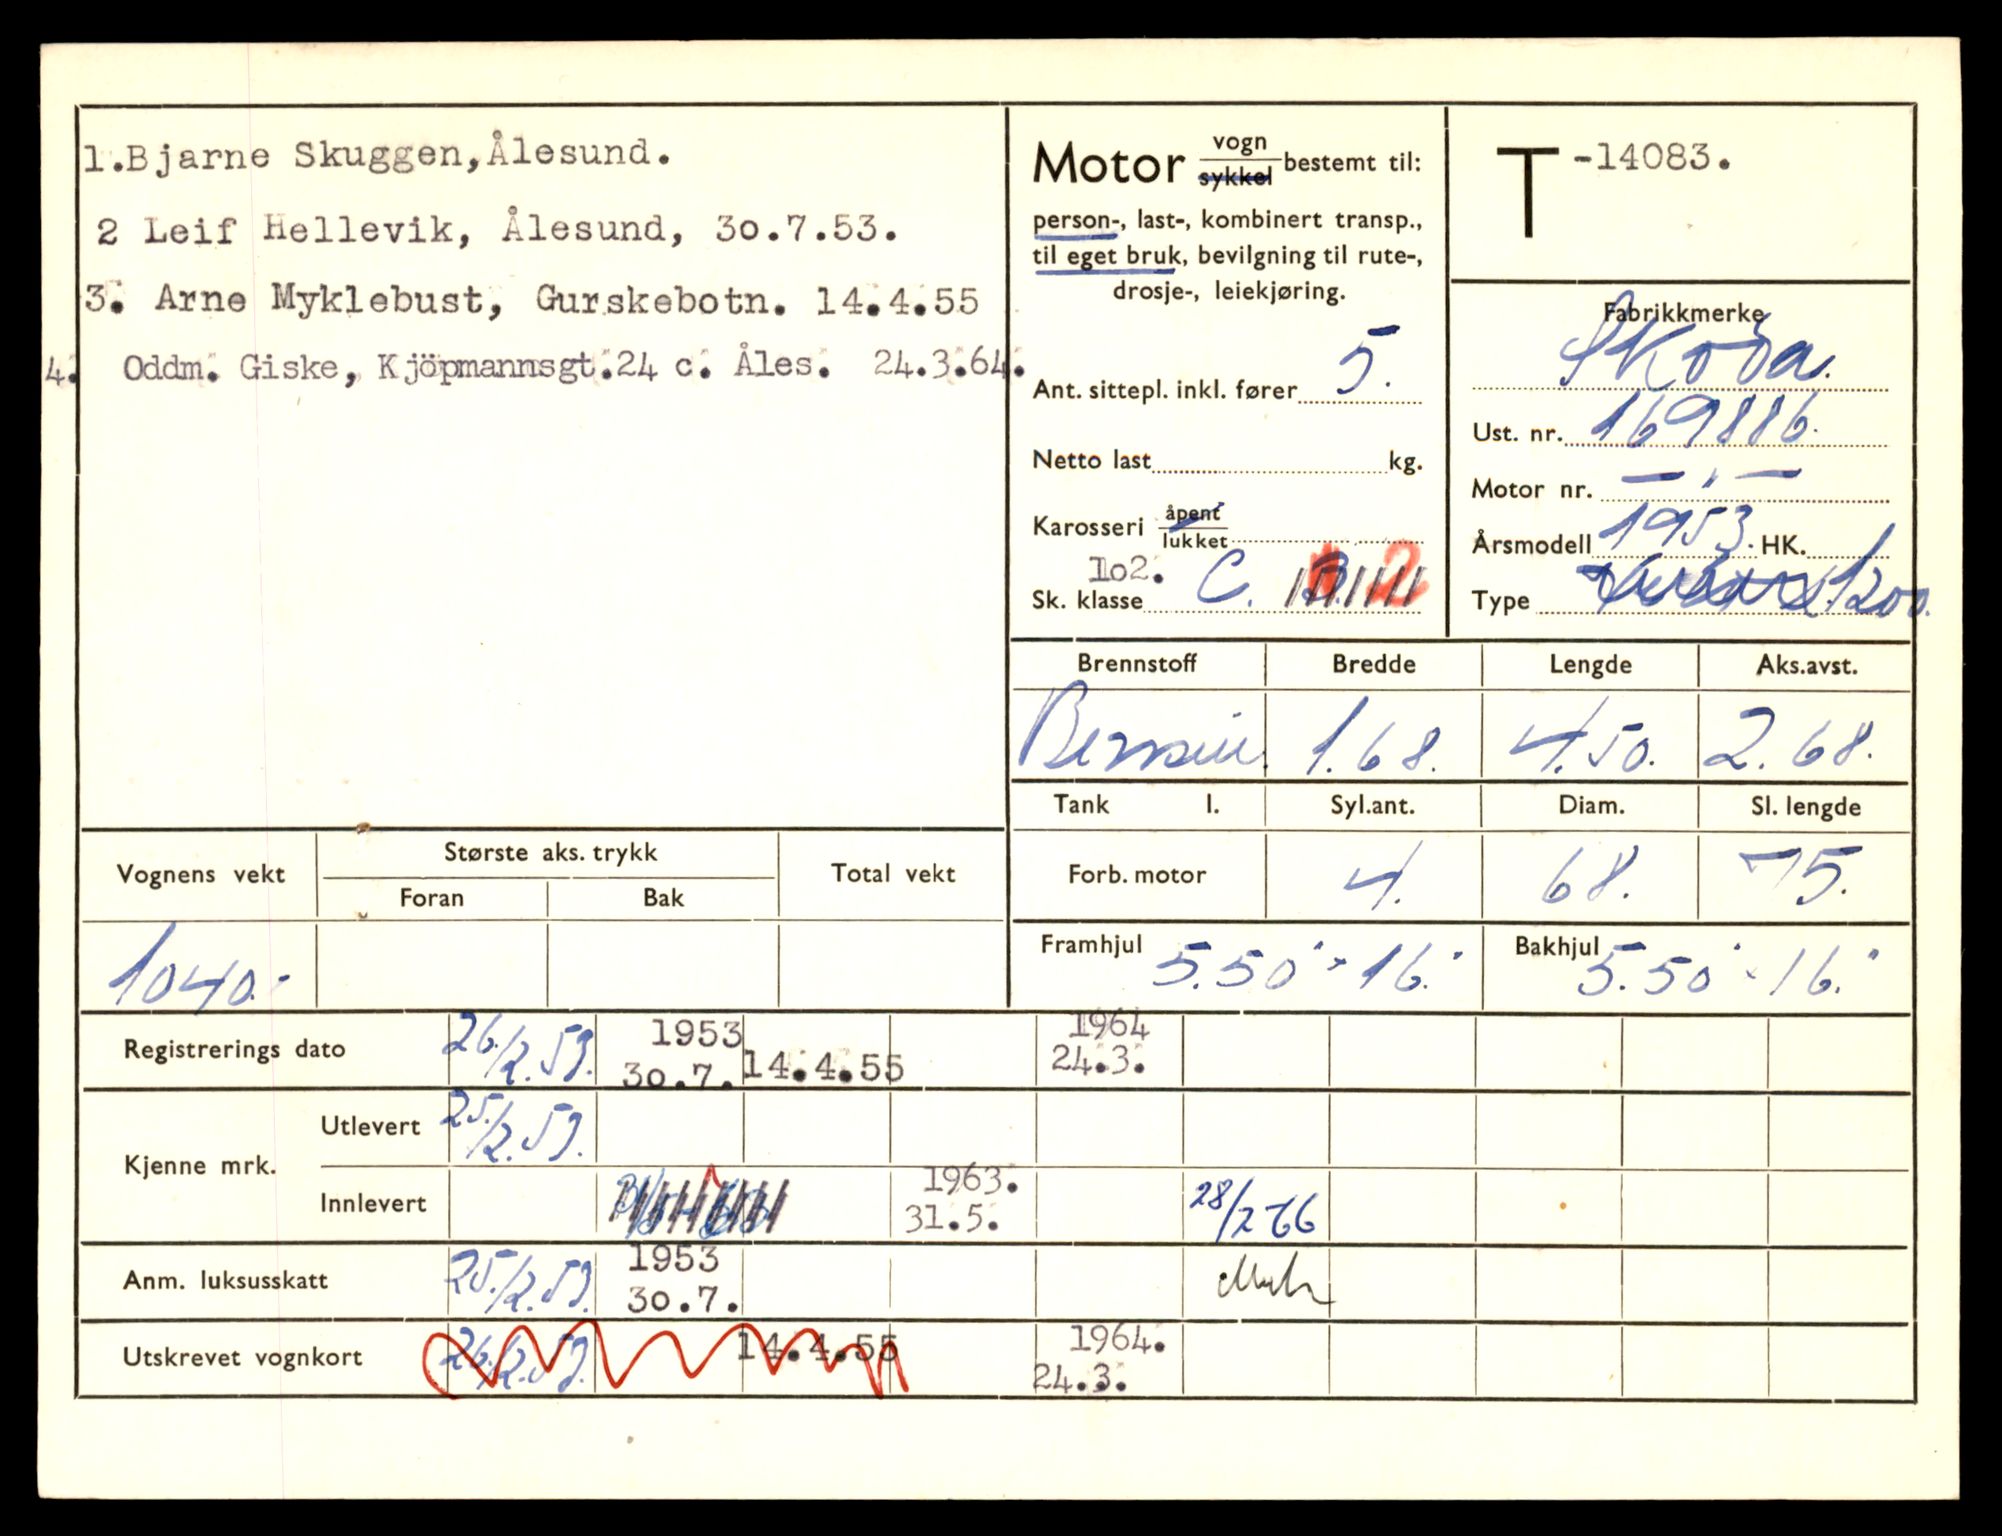 1.Bjarne Skuggen,Ålesund.
2 Leif Hellevik, Ålesund, 3o.7.53.
3. Arne Myklebust, Gurskebotn. 14.4.55
4. Oddm. Giske, Kjöpmannsgt.24 c. Åles. 24.3.64.
Motor vogn sykkel bestemt til:
person-, last-, kombinert transp.,
til eget bruk, bevilgning til rute-,
drosje-, leiekjøring.
Ant. sittepl. inkl. fører 5.
Netto last kg.
Karosseri åpent lukket
1o2.
Sk. klasse C.
T -14083.
Fabrikkmerke
Skoda.
Ust. nr. 169886.
Motor nr. — " —
Årsmodell 1953. HK.
Type 1200.
Brennstoff Bredde Lengde Aks.avst.
Bensin. 1.68. 4.50. 2.68.
Tank l. Syl.ant. Diam. Sl. lengde
Forb. motor 4. 68. 75.
Framhjul 5.50" × 16." Bakhjul 5.50" × 16."
Vognens vekt Største aks. trykk Total vekt
Foran Bak
1040.-
Registrerings dato 26/2.53. 1953 3o.7. 14.4.55 1964 24.3.
Kjenne mrk. Utlevert 25/2.53.
Innlevert 1963. 31.5. 28/2 66
Anm. luksusskatt 25/2.53. 1953 3o.7.
Utskrevet vognkort 26/2.53. 14.4.55 1964. 24.3.